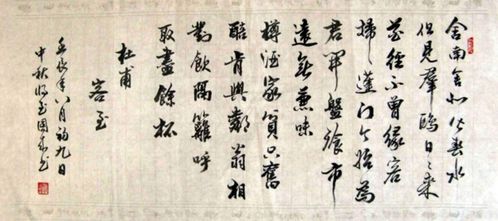 舍南舍北皆春水
但見羣鷗日日來
花徑不曾緣客
掃蓬門今始為
君開盤飧市
遠無兼味
樽酒家貧只舊
醅肯與鄰翁相
對飲隔籬呼
取盡餘杯
杜甫
客至
壬辰年八月初九日
中秋